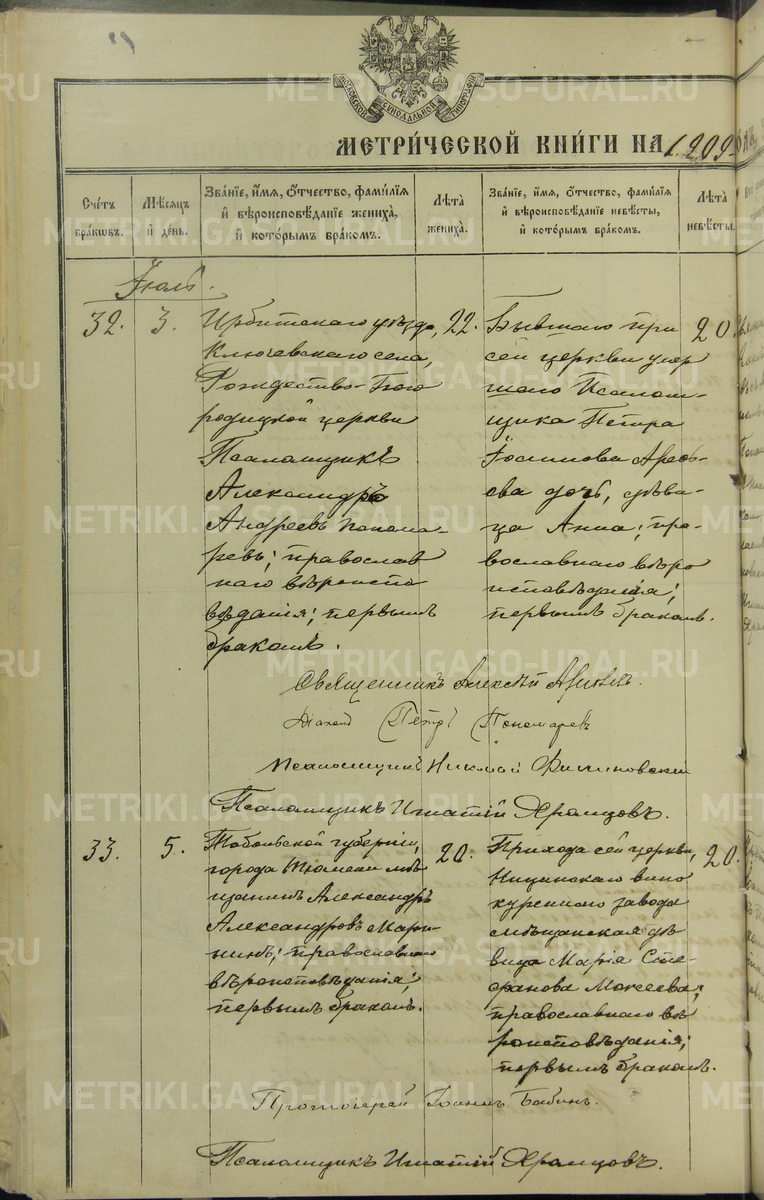 МОСКОВСКОЙ СѴНОДАЛЬНОЙ ТИПОГРАФІИ
МЕТРИ́ЧЕСКОЙ КНИ́ГИ НА 1909
Сче́тъ бра́кѡвъ.
Мѣ́сяцъ и҆ де́нь.
Зва́нїе, и҆́мя, ѻ҆́тчество, фами́лїя и҆ вѣроисповѣ́данїе жениха̀, и҆ кото́рымъ бра́комъ.
Лѣ́та жениха̀.
Зва́нїе, и҆́мя, ѻ҆́тчество, фами́лїя и҆ вѣроисповѣ́данїе невѣ́сты, и҆ кото́рымъ бра́комъ.
Лѣ́та невѣ́сты.
Іюль.
32.
3.
Ирбитскаго уѣзда,
Ключевскаго села,
Рождество-Бого
родицкой церкви
Псаломщикъ
Александръ
Андреевъ Понома-
ревъ; православ
наго вѣроиспо
вѣданія; первымъ
бракомъ.
22.
Бывшаго при
сей церкви умер
шаго Псалом-
щика Петра
Іосифова Арефь-
ева дочь, дѣви-
ца Анна; пра-
вославнаго вѣро
исповѣданія;
первымъ бракомъ.
20.
Священникъ Алексѣй
Діаконъ Петръ Пономаревъ
Псаломщикъ Николай
Псаломщикъ Игнатій Храмцовъ.
33.
5.
Тобольской губерніи,
города Тюмени мѣ
щанинъ Александръ
Александровъ Марь-
инъ; православнаго
вѣроисповѣданія;
первымъ бракомъ.
20.
Прихода сей церкви,
Ницинскаго вино
куреннаго завода
мѣщанская дѣ
вица Марія Сте
фанова Мокеева;
православнаго вѣ
роисповѣданія;
первымъ бракомъ.
20.
Протоіерей Іоаннъ Бабинъ.
Псаломщикъ Игнатій Храмцовъ.
METRIKI.GASO-URAL.RU